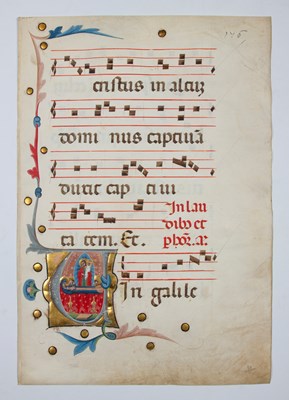 cristus in altuʒ
domi nus captiuā
duxit cap ti ui
ta tem. Et. In lau
dibȝ et
In galile